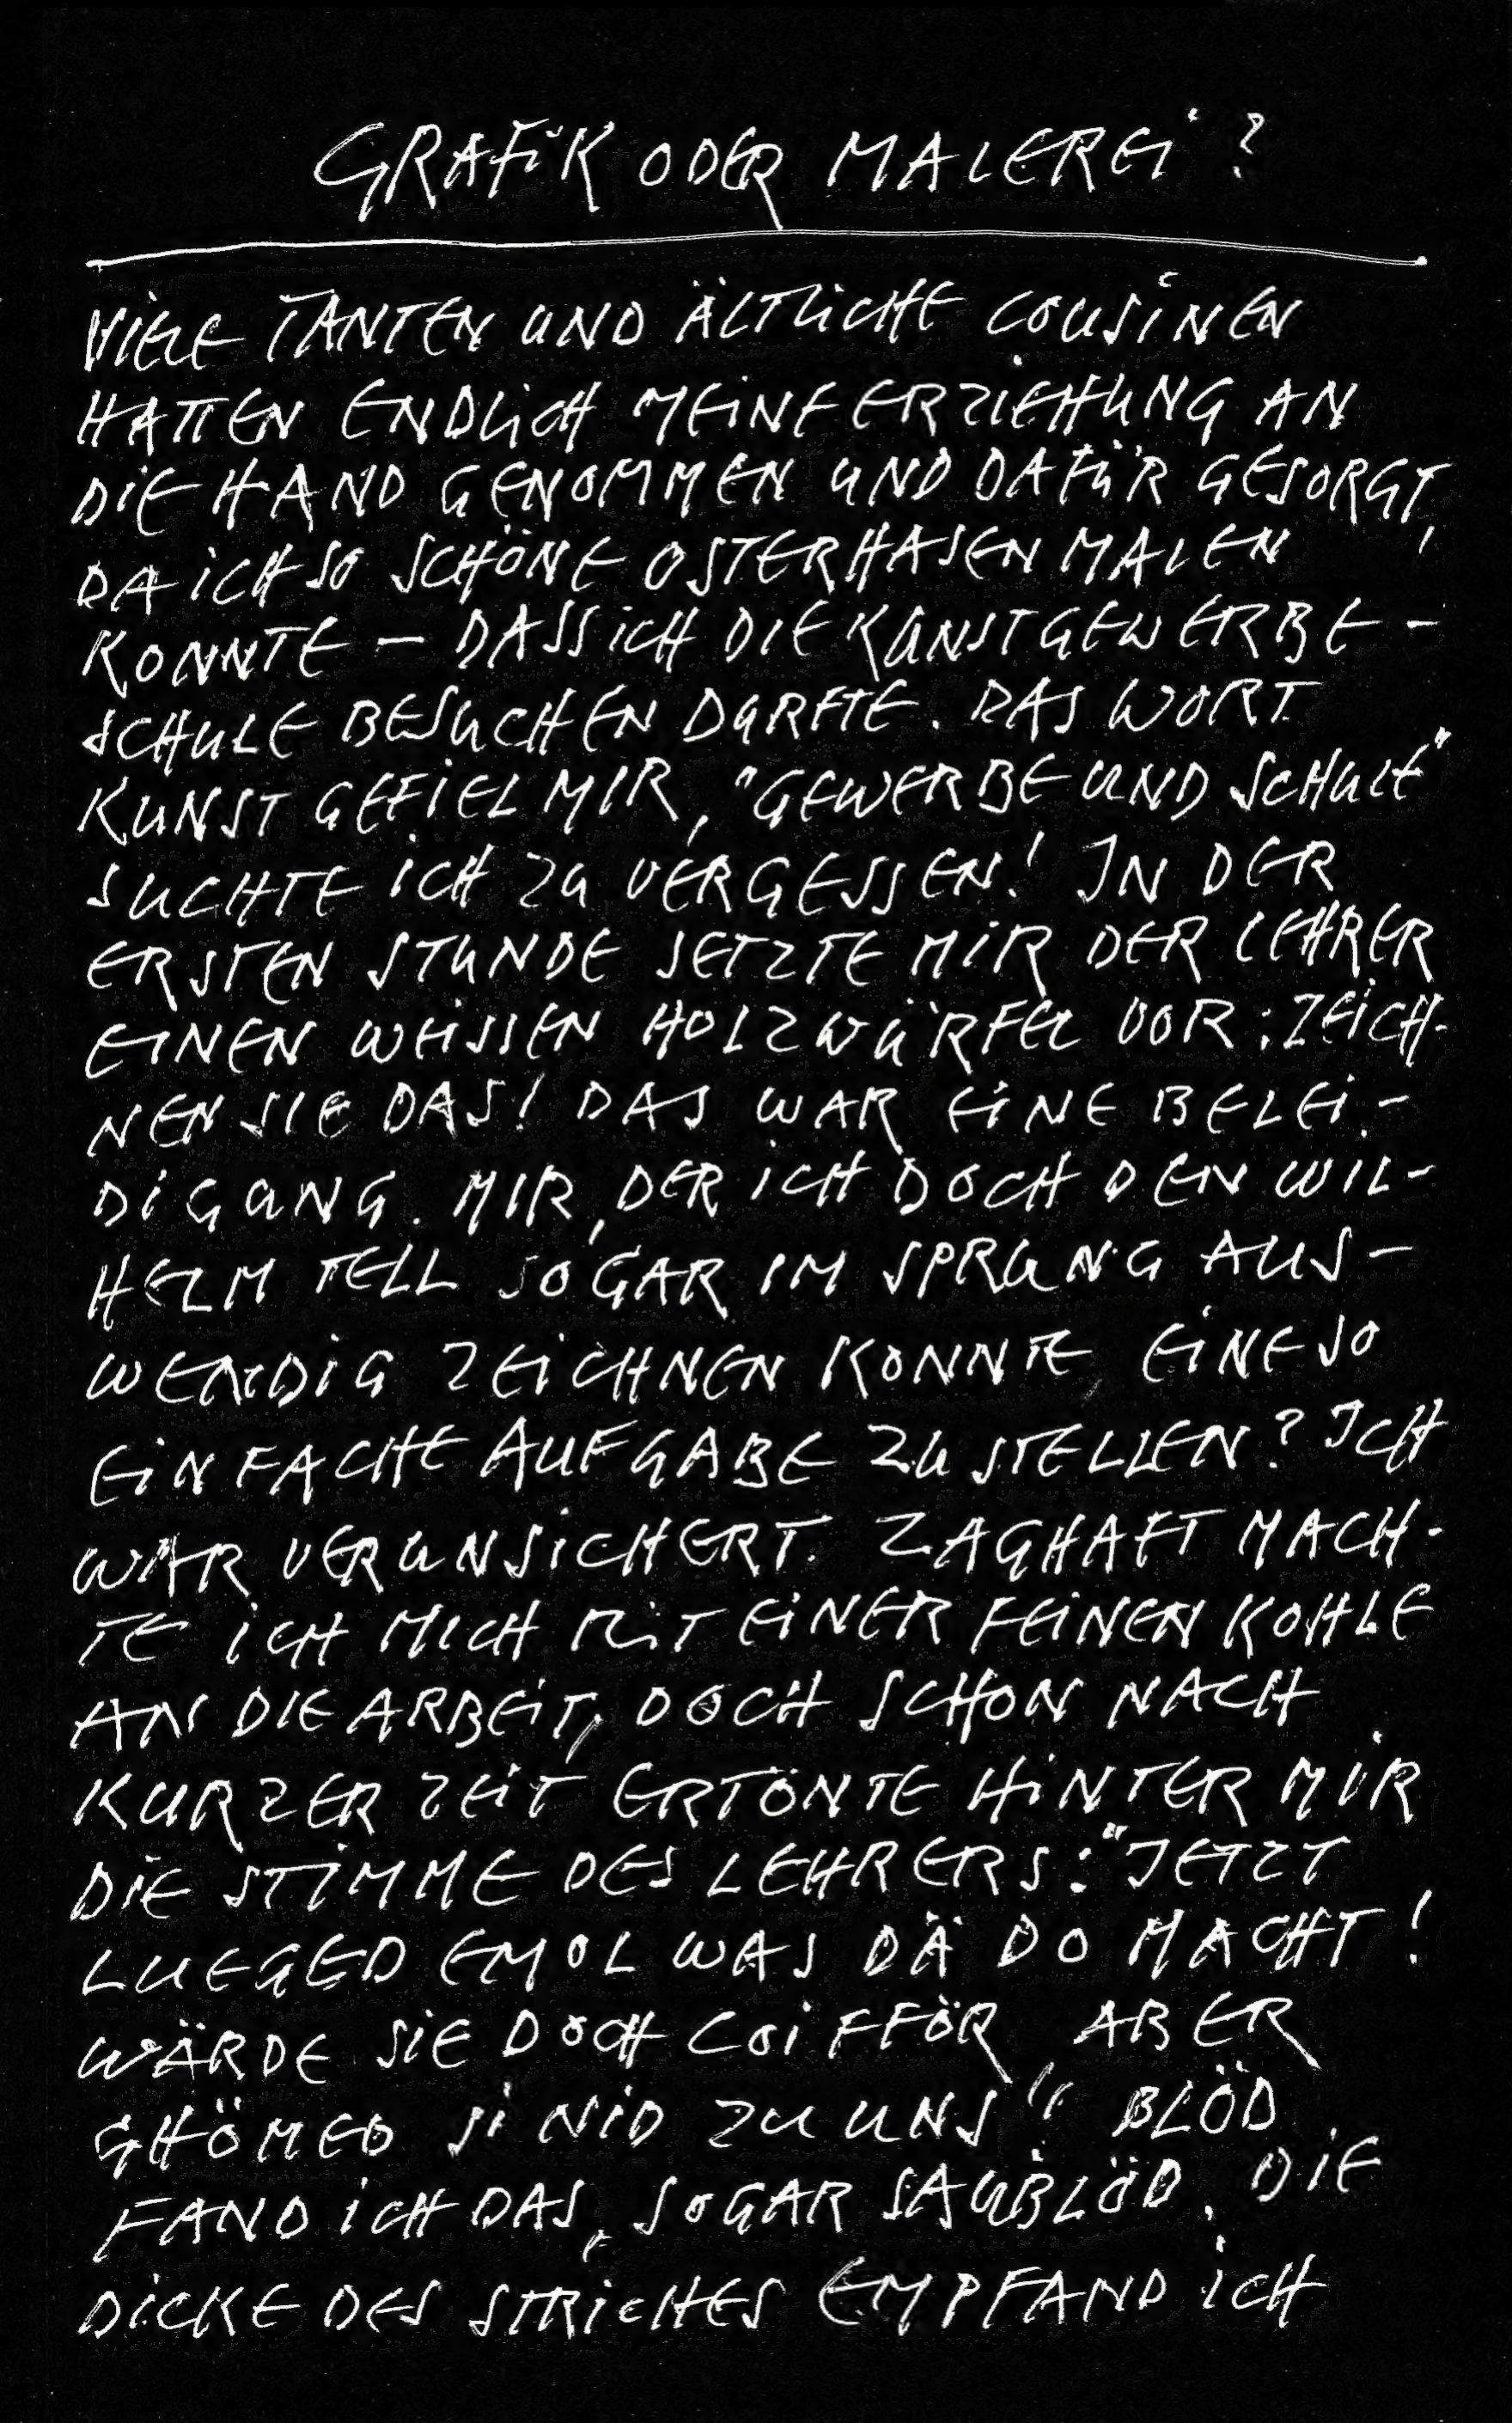 GRAFIK ODER MALEREI?
VIELE TANTEN UND ÄLTLICHE COUSINEN
HATTEN ENDLICH MEINE ERZIEHUNG AN
DIE HAND GENOMMEN UND DAFÜR GESORGT,
DA ICH SO SCHÖNE OSTERHASEN MALEN
KONNTE – DASS ICH DIE KUNSTGEWERBE-
SCHULE BESUCHEN DURFTE. DAS WORT
KUNST GEFIEL MIR, "GEWERBE UND SCHULE"
SUCHTE ICH ZU VERGESSEN! IN DER
ERSTEN STUNDE SETZTE MIR DER LEHRER
EINEN WEISSEN HOLZWÜRFEL VOR: ZEICH-
NEN SIE DAS! DAS WAR EINE BELEI-
DIGUNG. MIR, DER ICH DOCH DEN WIL-
HELM TELL SOGAR IM SPRUNG AUS-
WENDIG ZEICHNEN KONNTE, EINE SO
EINFACHE AUFGABE ZU STELLEN? ICH
WAR VERUNSICHERT. ZAGHAFT MACH-
TE ICH MICH MIT EINER FEINEN KOHLE
AN DIE ARBEIT, DOCH SCHON NACH
KURZER ZEIT ERTÖNTE HINTER MIR
DIE STIMME DES LEHRERS: "JETZT
LUEGED EMOL WAS DÄ DO MACHT!
WÄRDE SIE DOCH COIFFÖR ABER
GHÖMED SI NID ZU UNS!" BLÖD
FAND ICH DAS, SOGAR SAUBLÖD. DIE
DICKE DES STRICHES EMPFAND ICH